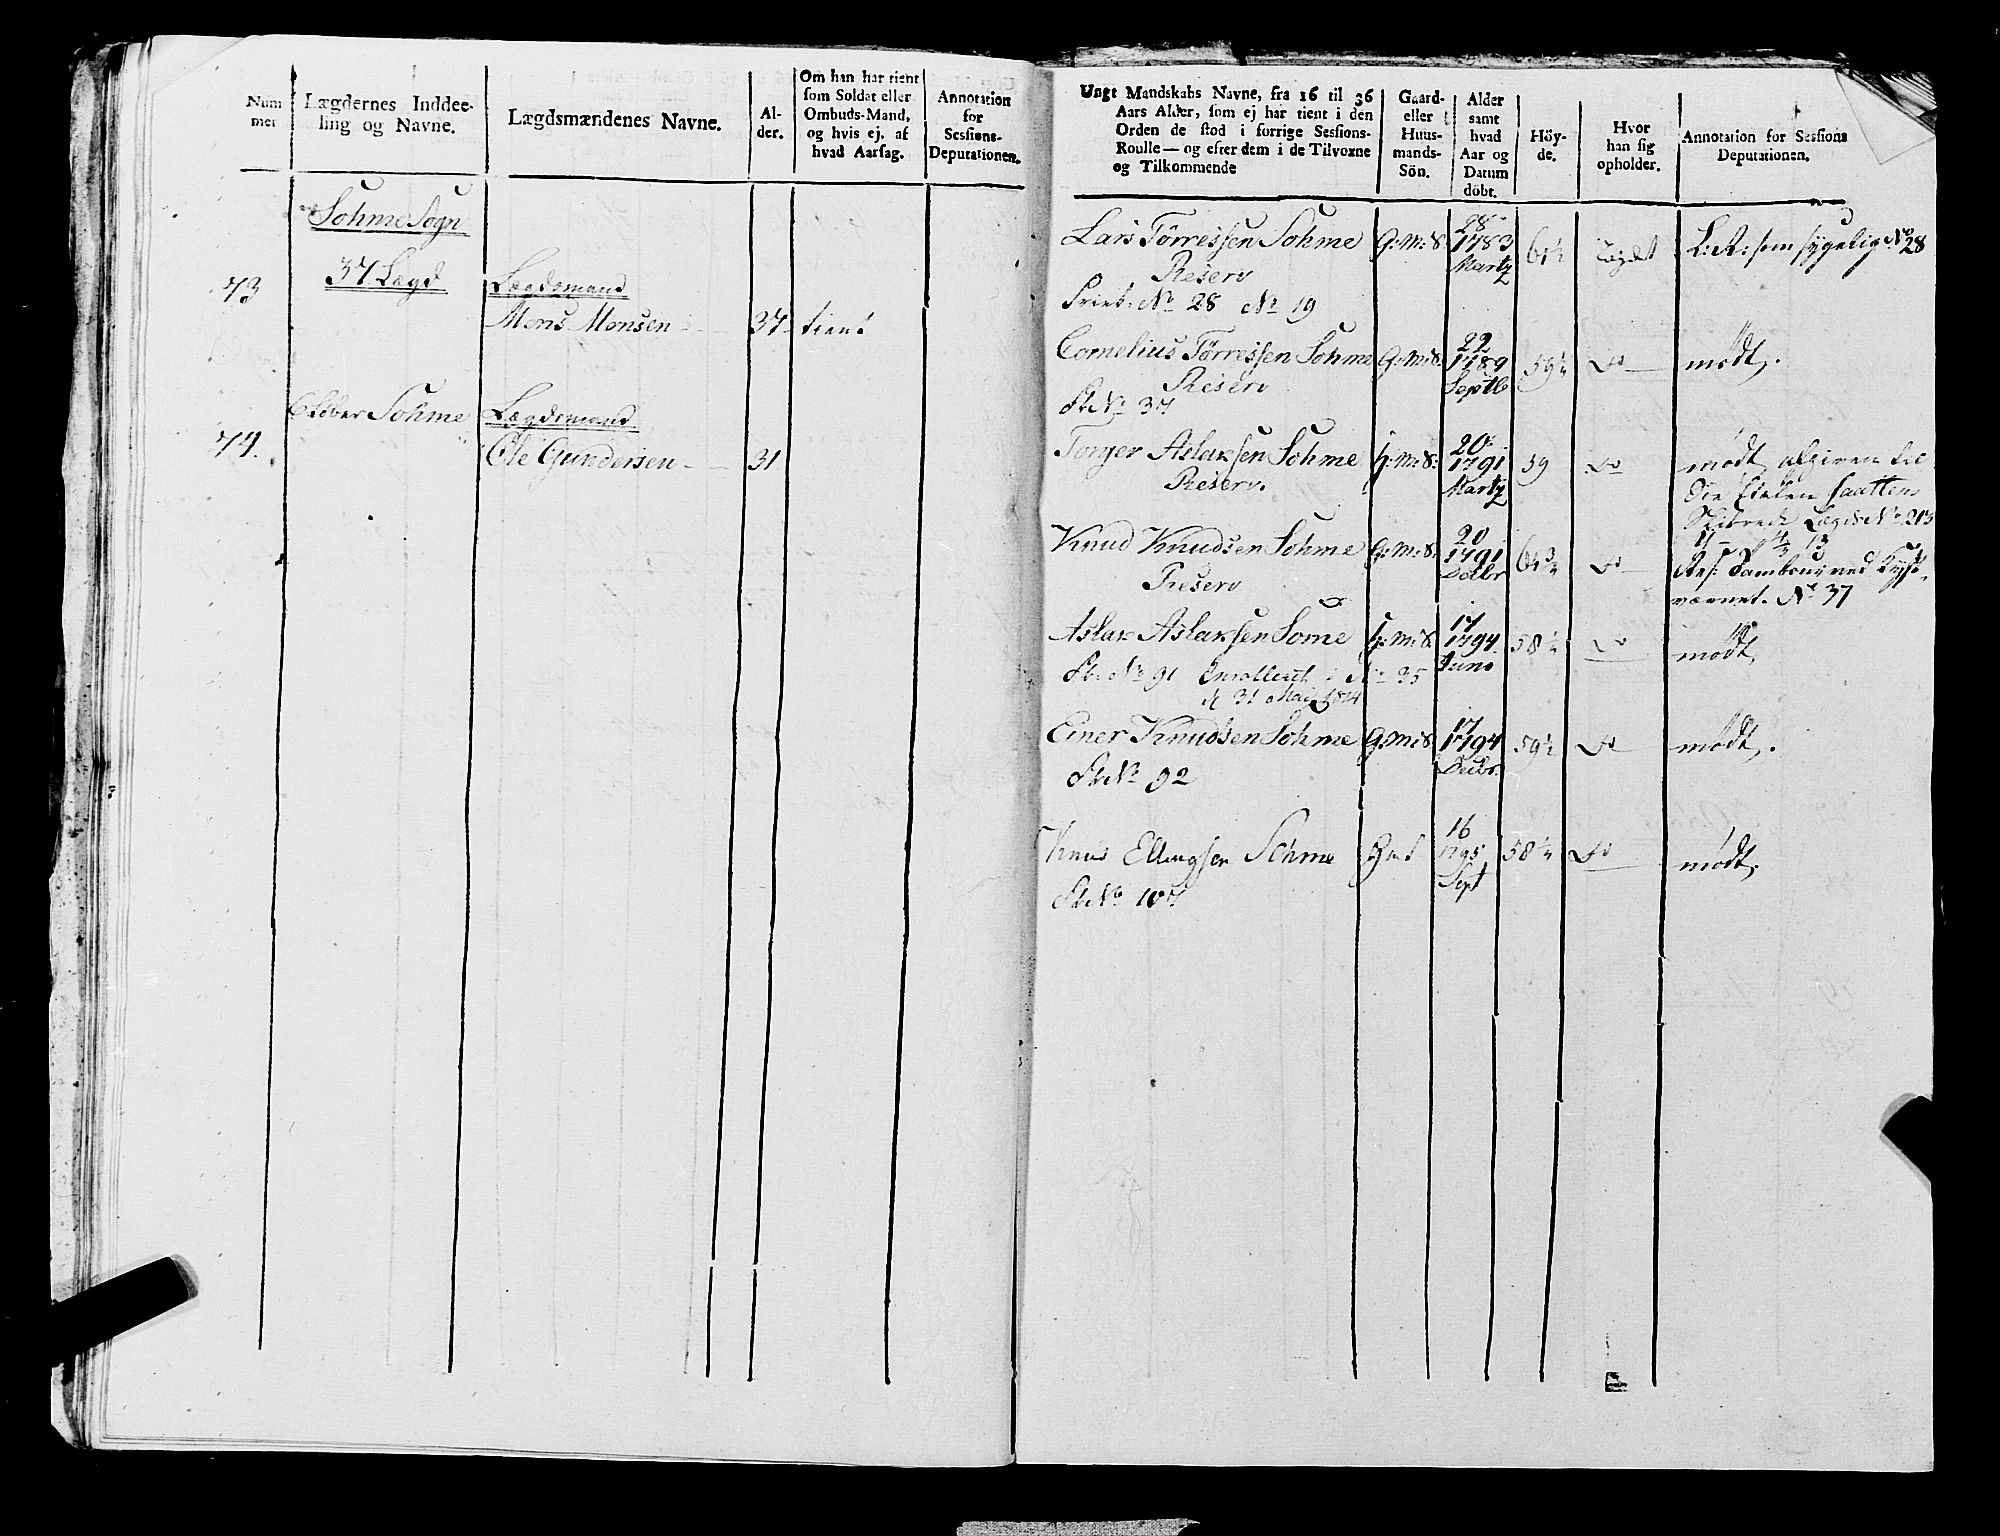 Num
mer
Lægdernes Inddee-
ling og Navne.
Lægdsmændenes Navne.
Al-
der.
Om han har tient
som Soldat eller
Ombuds-Mand,
og hvis ej, af
hvad Aarsag.
Annotation
for
Sessions-
Deputationen.
Sohme Sogn
37 Lægd
73
Lægdsmand
Mons Monsen 37 tient
Sohme
Lægdsmand
74.
Ole Gundersen 31
Ungt Mandskabs Navne, fra 16 til 36
Aars Alder, som ej har tient i den
Orden de stod i forrige Sessions-
Roulle — og efter dem i de Tilvoxne
og Tilkommende
Gaard-
eller
Huus-
mands-
Sön.
Alder
samt
hvad
Aar og
Datum
döbt.
Höy-
de.
Hvor
han sig
opholder.
Annotation for Sessions
Deputationen.
Lars Törressen Sohme G:M:S. 28 1783 Martz 61½ Lægdet L:R: som sygelig No 28
Reserv
No 28 No 19
Cornelius Törressen Sohme G:M:S. 22 1789 Septb 59½ Do mødt.
Reserv
No 37
Torger Aslaksen Sohme H:M:S: 20 1791 Martz 59 Do mødt, afgiven til
Reserv.
Lægds No 213
Knud Knudsen Sohme G:M:S. 20 1791 61¾ Do
Reserv
Res: Tambour ved Kyst-
værnet. No 37
Aslak Aslaksen Some H:M:S. 17 1794 Juno 58½ Do mødt,
No 91 Enrolleret i No 35
d 31 Mai 1814
Einer Knudsen Sohme G:M:S. 17 1794 Decbr. 59½ Do mødt.
No 92
Knud Ellingsen Sohme 16 1795 Sept 58½ Do mødt.
No 107